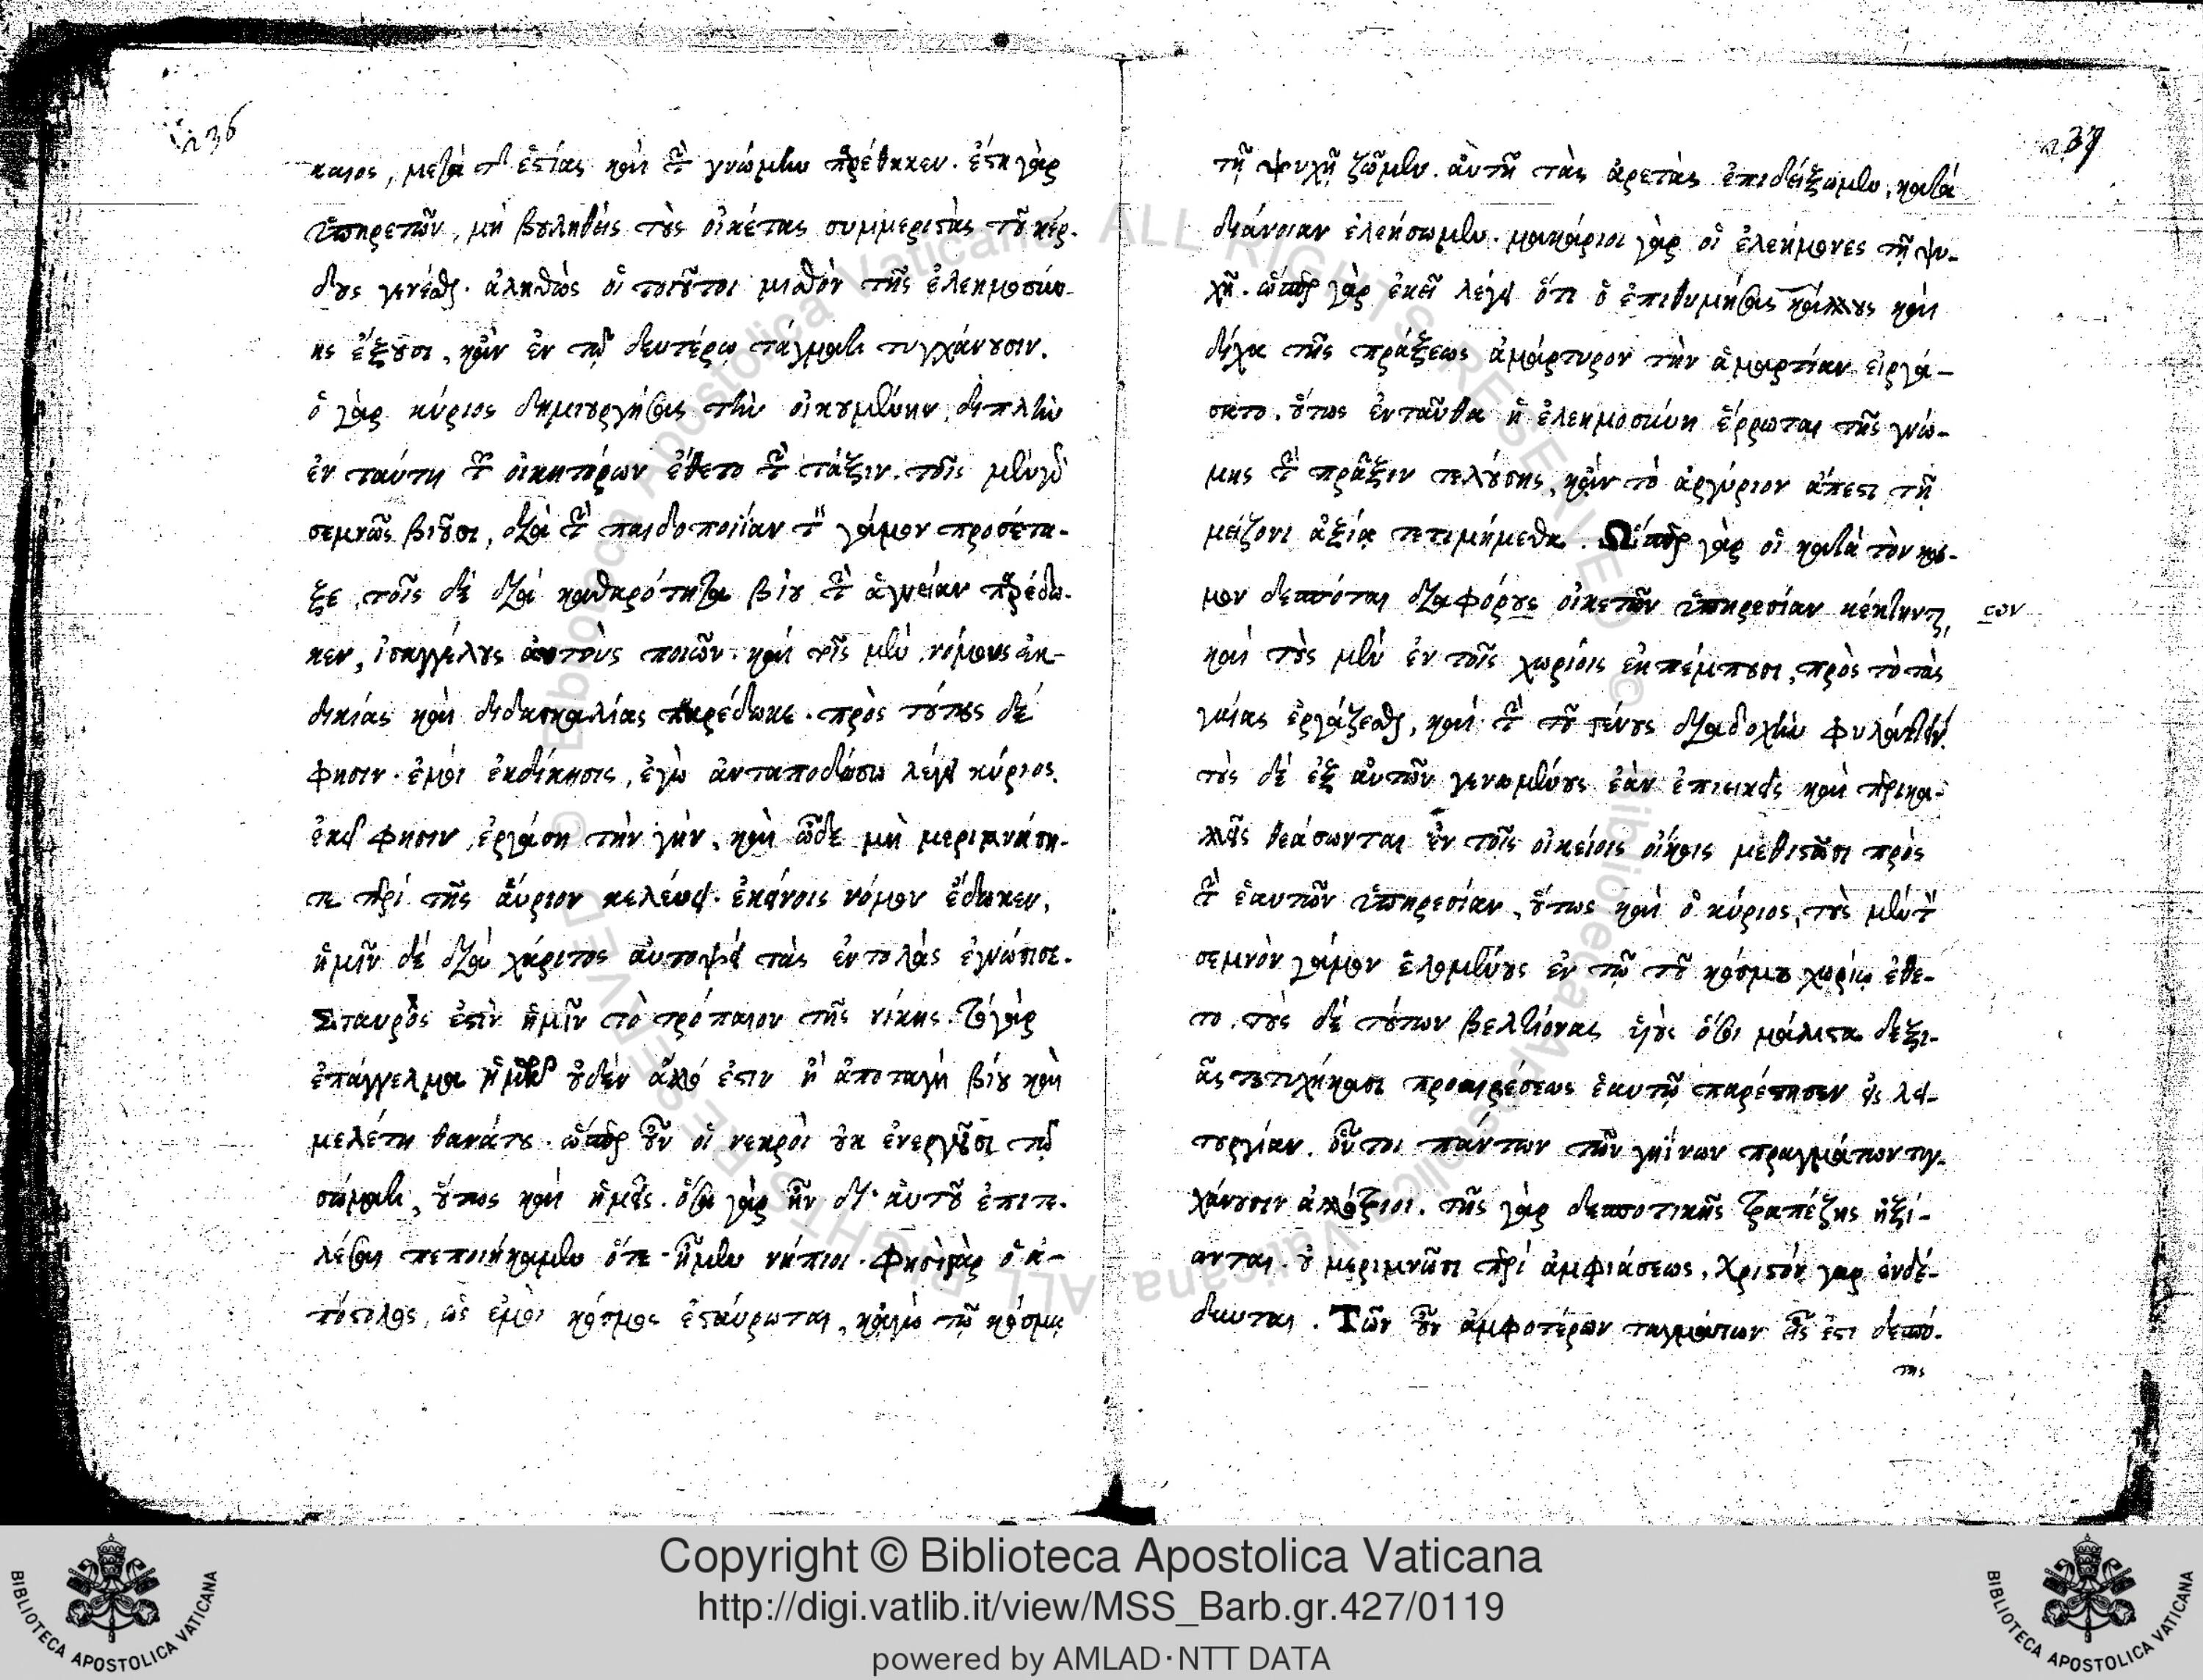 236
καιος, μετὰ τῆς ἑστίας καὶ τὴν γνώμην παρέθηκεν. ἔστη γὰρ
ὑπηρετῶν, μὴ βουληθεὶς τοὺς οἰκέτας συμμεριστὰς τοῦ κέρ-
δους γενέσθαι. ἀληθῶς οἱ τοιοῦτοι μισθὸν τῆς ἐλεημοσύν-
ης ἕξουσι, κἂν ἐν τῷ δευτέρῳ τάγματι τυγχάνουσιν.
ὁ γὰρ κύριος δημιουργήσας τὴν οἰκουμένην, διπλὴν
ἐν ταύτῃ τὴν οἰκητόρων ἔθετο τὴν τάξιν. τοῖς μὲν γὰρ
σεμνῶς βιοῦσι, διὰ τὴν παιδοποιίαν τὸν γάμον προσέτα-
ξε, τοῖς δὲ διὰ καθαρότητα βίου τὴν ἁγνείαν παρέδω-
κεν, ἰσαγγέλους αὐτοὺς ποιῶν. καὶ τοῖς μὲν νόμους ἐκ-
δικίας καὶ διδασκαλίας παρέδωκε. πρὸς τούτους δέ
φησιν. ἐμοὶ ἐκδίκησις, ἐγὼ ἀνταποδώσω λέγει κύριος.
ἐκεῖ φησιν, ἐργάσῃ τὴν γῆν, καὶ ὧδε μὴ μεριμνήση-
τε περὶ τῆς αὔριον κελεύει. ἐκείνοις νόμον ἔδωκεν,
ἡμῖν δὲ διὰ χάριτος αὐτοψεὶ τὰς ἐντολὰς ἐγνώρισε.
Σταυρός ἐστιν ἡμῖν τὸ τρόπαιον τῆς νίκης. τὸ γὰρ
ἐπάγγελμα ἡμῶν οὐδὲν ἄλλό ἐστιν ἢ ἀποταγὴ βίου καὶ
μελέτη θανάτου. ὥσπερ οὖν οἱ νεκροὶ οὐκ ἐνεργοῦσι τῷ
σώματι, οὕτως καὶ ἡμεῖς. ὅσα γὰρ ἦν δι' αὐτοῦ ἐπιτε-
λέσαι πεποιήκαμεν ὅτε ἦμεν νήπιοι. φησὶ γὰρ ὁ ἀ-
πόστολος, ὡς ἐμοὶ κόσμος ἐσταύρωται, κἀγὼ τῷ κόσμῳ
237
τῇ ψυχῇ ζῶμεν. αὐτῇ τὰς ἀρετὰς ἐπιδείξωμεν, κατὰ
διάνοιαν ἐλεήσωμεν. μακάριοι γὰρ οἱ ἐλεήμονες τῇ ψυ-
χῇ. ὥσπερ γὰρ ἐκεῖ λέγει ὅτι ὁ ἐπιθυμήσας κάλλους καὶ
δίχα τῆς πράξεως ἀμάρτυρον τὴν ἁμαρτίαν εἰργά-
σατο. οὕτως ἐνταῦθα ἡ ἐλεημοσύνη ἔρρωται τῆς γνώ-
μης τὴν πρᾶξιν τελούσης, κἂν τὸ ἀργύριον ἄπεστι τῇ
μείζονι ἀξίᾳ τετιμήμεθα. Ὥσπερ γὰρ οἱ κατὰ τὸν κόσ-
μον δεσπόται διαφόρους οἰκετῶν ὑπηρεσίαν κέκτηνται, σον
καὶ τοὺς μὲν ἐν τοῖς χωρίοις ἐκπέμπουσι, πρὸς τὸ τὰς
γαίας ἐργάζεσθαι, καὶ τὴν τοῦ γένους διαδοχὴν φυλάττειν.
τοὺς δὲ ἐξ αὐτῶν γενομένους ἐὰν ἐπιεικεῖς καὶ περικα-
λλεῖς θεάσωνται ἐν τοῖς οἰκείοις οἴκοις μεθιστῶσι πρὸς
τὴν ἑαυτῶν ὑπηρεσίαν, οὕτως καὶ ὁ κύριος, τοὺς μὲν τὸν
σεμνὸν γάμον ἑλομένους ἐν τῷ τοῦ κόσμου χωρίῳ ἔθε-
το. τοὺς δὲ τούτων βελτίονας ἤγουν ὅσοι μάλιστα δεξι-
ᾶς τετυχήκασι προαιρέσεως ἑαυτῷ παρέστησεν εἰς λει-
τουργίαν. οὗτοι πάντων τῶν γηΐνων πραγμάτων τυγ-
χάνουσιν ἀλλότριοι. τῆς γὰρ δεσποτικῆς τραπέζης ἠξί-
ωνται. οὐ μεριμνῶσι περὶ ἀμφιάσεως, Χριστὸν γαρ ἐνδέ-
δυνται. Τῶν οὖν ἀμφοτέρων ταγμάτων εἷς ἐστι δεσπό-
της
Copyright © Biblioteca Apostolica Vaticana
http://digi.vatlib.it/view/MSS_Barb.gr.427/0119
powered by AMLAD·NTT DATA
BIBLIOTECA APOSTOLICA VATICANA
BIBLIOTECA APOSTOLICA VATICANA